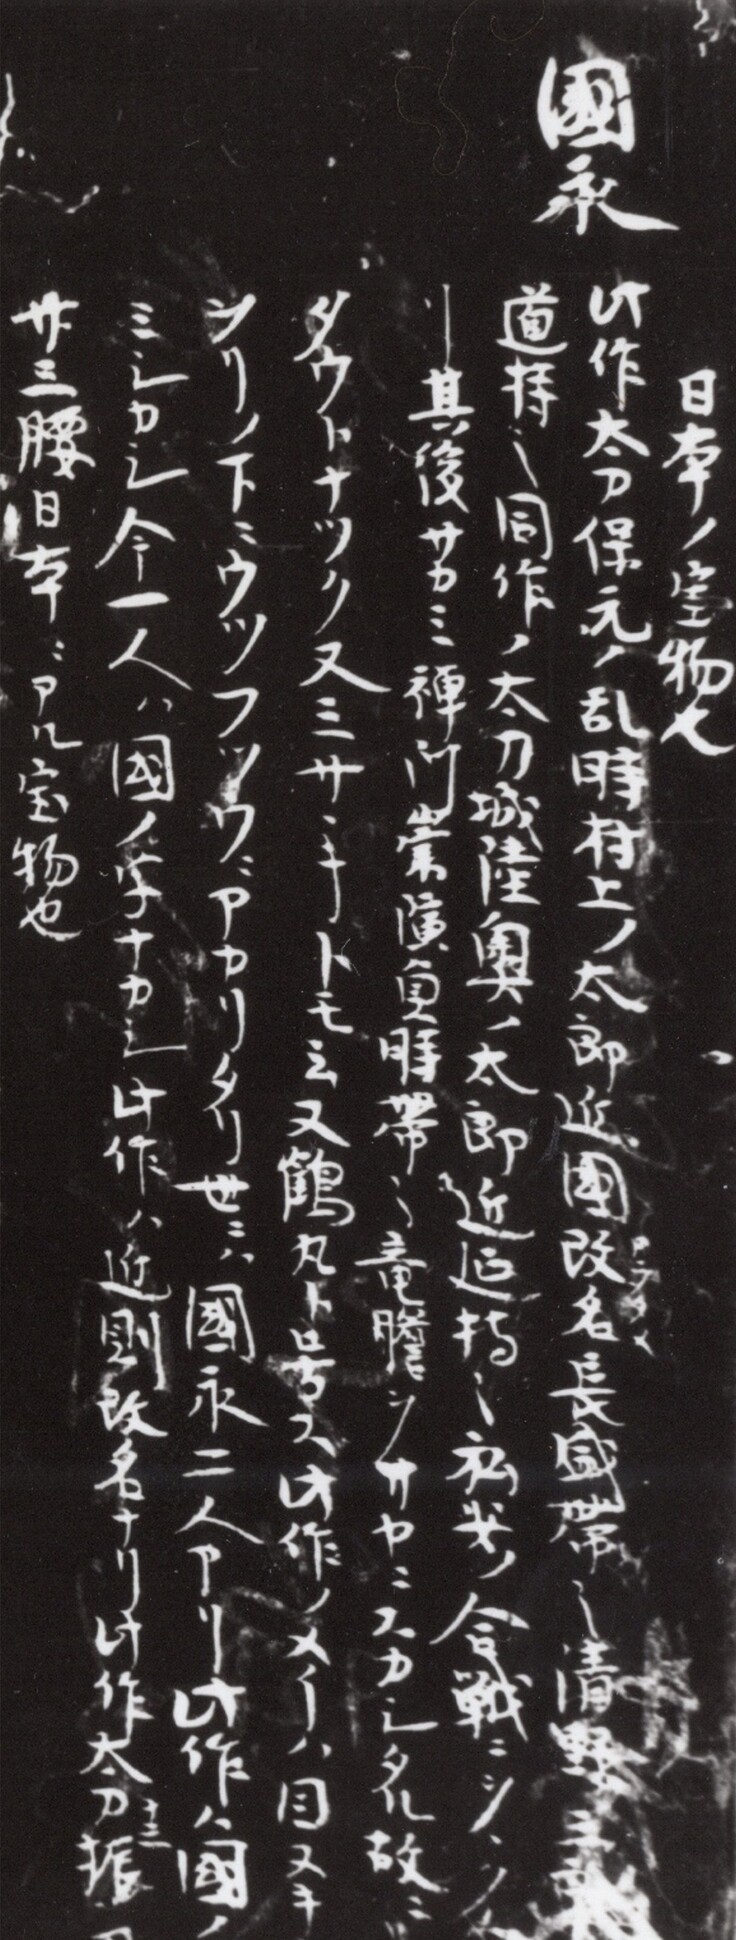 國永
日本ノ宝物也
此作太刀保元ノ乱時村上ノ太郎近國改名長盛帯之清野三郎
道持之同作ノ太刀城陸奥ノ太郎近延持之 合戦ニ
其後サカミ禅門崇演貞時帯之竜膽ヲサヤニスカシタル故ニ
タウトナツク又ミサヽキトモ云又鶴丸ト号ス此作ノメイハ目ヌキ
シリノ下ニウツフツウニアカリタリ世ニハ國永二人アリ此作ハ國ノ
ミシカシ今一人ハ國ノ字ナカシ此作ハ近則改名ナリ此作太刀十三振刀
廿三腰日本ニアル宝物也